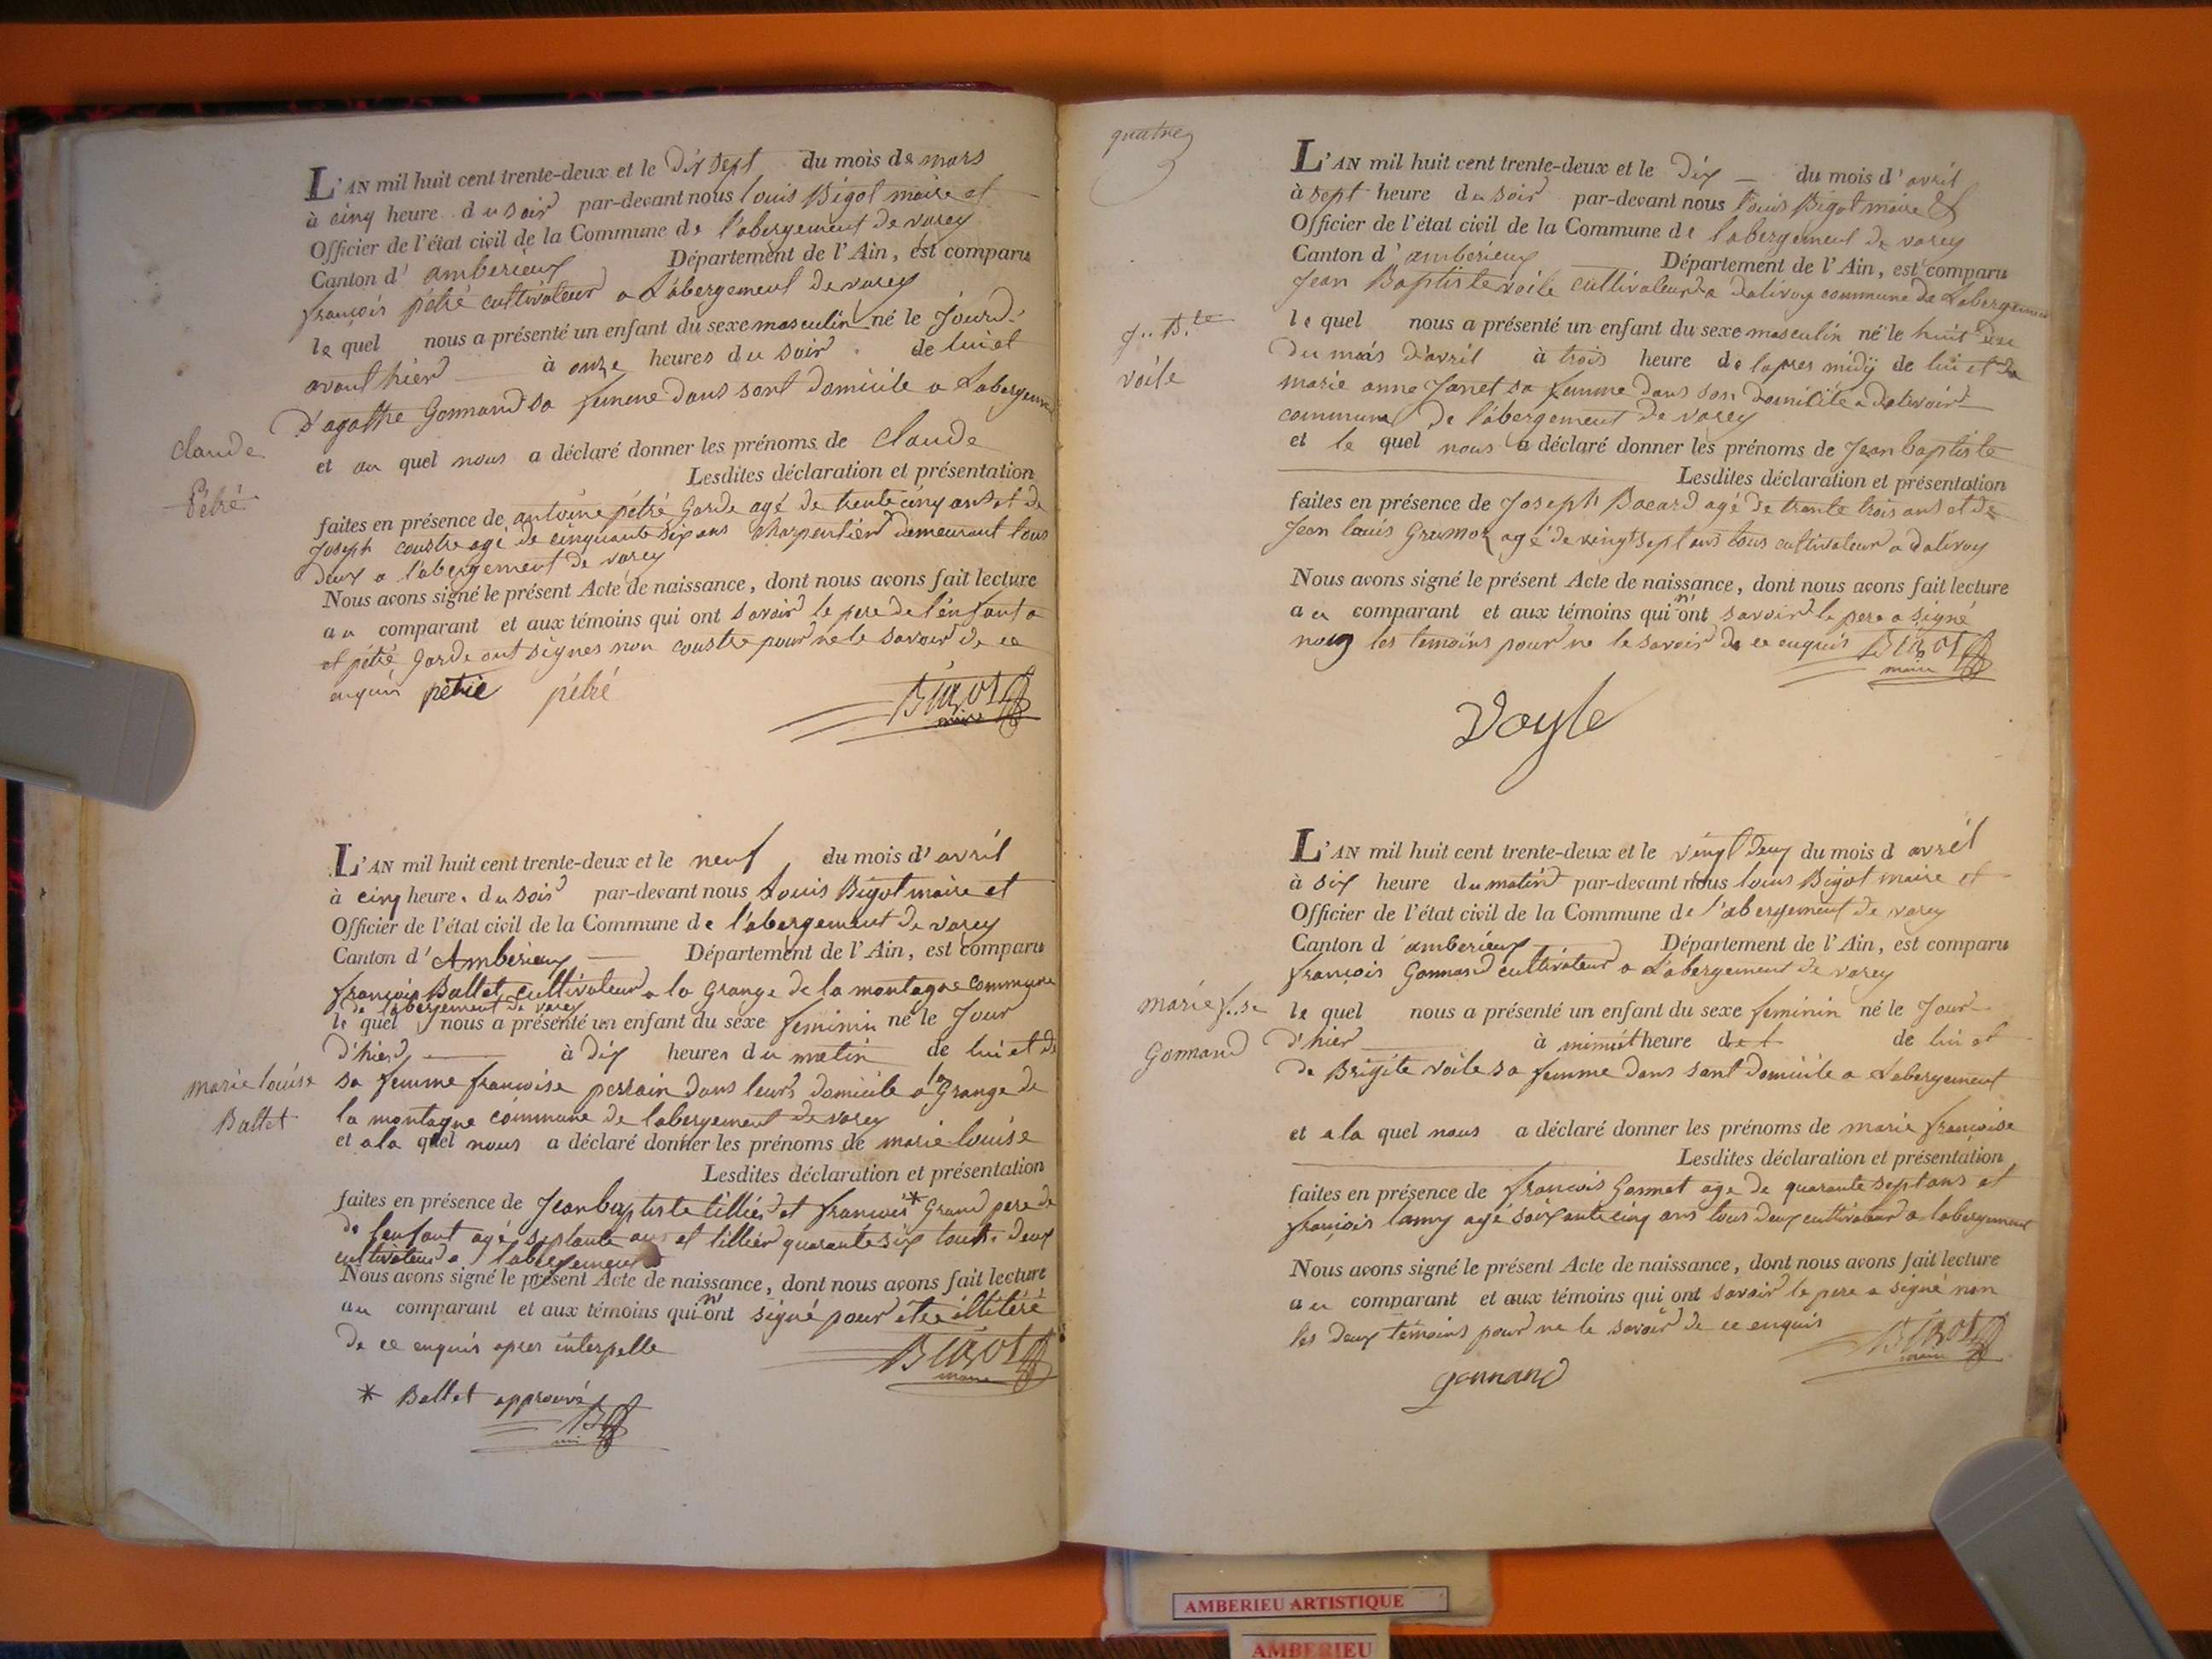 L'AN mil huit cent trente-deux et le dix sept du mois de mars
à cinq heure du soir par-devant nous louis Bigot maire et
Officier de l'état civil de la Commune de l'abergement de varey
Canton d'amberieux Département de l'Ain, est comparu
françois pétré cultivateur a L'abergement de varey
le quel nous a présenté un enfant du sexe masculin né le Jourd.
avant hier à onze heures du soir de lui et
D'agathe Gonnand sa femme dans sont domicile a Labergement
claude
Pétré
et au quel nous a déclaré donner les prénoms de claude
Lesdites déclaration et présentation
faites en présence de antoine pétré Garde agé de trente cinq ans et de
Joseph coustre agé de cinquante six ans charpentier demeurant tous
deux a l'abergement de varey
Nous avons signé le présent Acte de naissance, dont nous avons fait lecture
au comparant et aux témoins qui ont savoir le pere de l'enfant a
et pétré Garde ont signés non coustre pour ne le savoir de ce
enquis pétré pétré
Bigot
maire
L'AN mil huit cent trente-deux et le neuf du mois d'avril
à cinq heure. du soir par-devant nous Louis Bigot maire et
Officier de l'état civil de la Commune de l'abergement de varey
Canton d'Amberieux Département de l'Ain, est comparu
françois Ballet cultivateur a la Grange de la montagne commune
de labergement de varey
le quel nous a présenté un enfant du sexe feminin né le Jour
d'hier à dix heures du matin de lui et de
marie louise
Ballet
sa femme francoise perrain dans leurs domicile a la Grange de
la montagne commune de labergement de varey
et a la quel nous a déclaré donner les prénoms de marie louise
Lesdites déclaration et présentation
faites en présence de Jean baptiste tillier et francois * Grand pere de
de lenfant agé septante ans et tillier quarante six tout. deux
cultivateur a labergement
Nous avons signé le présent Acte de naissance, dont nous avons fait lecture
au comparant et aux témoins qui n'ont signé pour étre illitéré
de ce enquis apres interpelle
Bigot
maire
* Ballet approuvé
quatre
L'AN mil huit cent trente-deux et le dix du mois d'avril
à sept heure du soir par-devant nous louis Bigot maire &
Officier de l'état civil de la Commune de labergement de varey
Canton d'amberieux Département de l'Ain, est comparu
Jean Baptiste voile cultivateur a dalivoy commune de Labergement
J.. B.te
voile
le quel nous a présenté un enfant du sexe masculin né le huit du
du mois d'avril à trois heure de lapres midÿ de lui et de
marie anne Janet sa femme dans son domicile a dalivoir
commune de l'abergement de varey
et le quel nous a déclaré donner les prénoms de Jean baptiste
Lesdites déclaration et présentation
faites en présence de Joseph Bacard agé de trente trois ans et de
Jean louis Gramoz agé de vingt sept ans tous cultivateur a dalivoy
Nous avons signé le présent Acte de naissance, dont nous avons fait lecture
au comparant et aux témoins qui n'ont savoir le pere a signé
non les temoins pour ne le savoir de ce enquis Bigot
maire
Voyle
L'AN mil huit cent trente-deux et le vingt deux du mois d avril
à six heure du matin par-devant nous louis Bigot maire et
Officier de l'état civil de la Commune de l'abergement de varey
Canton d'amberieux Département de l'Ain, est comparu
françois Gonnand cultivateur a L'abergement de varey
marie f..se
Gonnand
le quel nous a présenté un enfant du sexe feminin né le Jour
d'hier à minuit heure de lui et
de Brigite voile sa femme dans sont domicile a Labergement
et a la quel nous a déclaré donner les prénoms de marie francoise
Lesdites déclaration et présentation
faites en présence de francois Gonnet age de quarante sept ans et
françois lamy agé soixante cinq ans tous deux cultivateur a labergement
Nous avons signé le présent Acte de naissance, dont nous avons fait lecture
au comparant et aux témoins qui ont savoir le pere a signé non
les deux témoins pour ne le savoir de ce enquis Bigot
maire
gonnand
AMBERIEU ARTISTIQUE
AMBERIEU